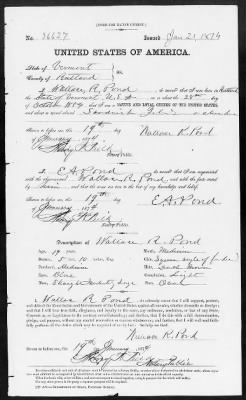 [FORM FOR NATIVE CITIZEN.]
No. 36627 Issued Jan 21, 1874
UNITED STATES OF AMERICA.
State of Vermont
County of Rutland } ss.
I, Wallace R. Pond do swear that I was born in Rutland
State of Vermont U.S.A on or about the 28th day
of October 1854 that I am a NATIVE AND LOYAL CITIZEN OF THE UNITED STATES,
and about to travel
Sandwich Islands
Sworn to before me, this 19th day
of January 1874
Wallace R. Pond
Notary Public.
I, E.A. Pond do swear that I am acquainted
with the above-named Wallace R. Pond, and with the facts stated
by him, and that the same are true to the best of my knowledge and belief.
Sworn to before me, this 19th day
of January 1874
E.A. Pond
Notary Public.
Description of Wallace R. Pond
Age: 19 years
Stature: 5 feet 10 inches, Eng.
Forehead: Medium
Eyes: Blue
Nose: Straight
Mouth: Medium
Chin: Square
Hair: Dark Brown
Complexion: Light
Face: Oval
I, Wallace R. Pond do solemnly swear that I will support, protect,
and defend the Constitution and Government of the United States against all enemies, whether domestic
or foreign; and that I will bear true faith, allegiance, and loyalty to the same, any ordinance, resolution, or law of any State,
Convention, or Legislature to the contrary notwithstanding; and further, that I do this with a full determination,
pledge, and purpose, without any mental reservation or evasion whatsoever; and further, that I will well and
faithfully perform all the duties which may be required of me by law: So help me God.
Wallace R. Pond
Sworn to before me, this 19th day
of January 1874
Notary Public